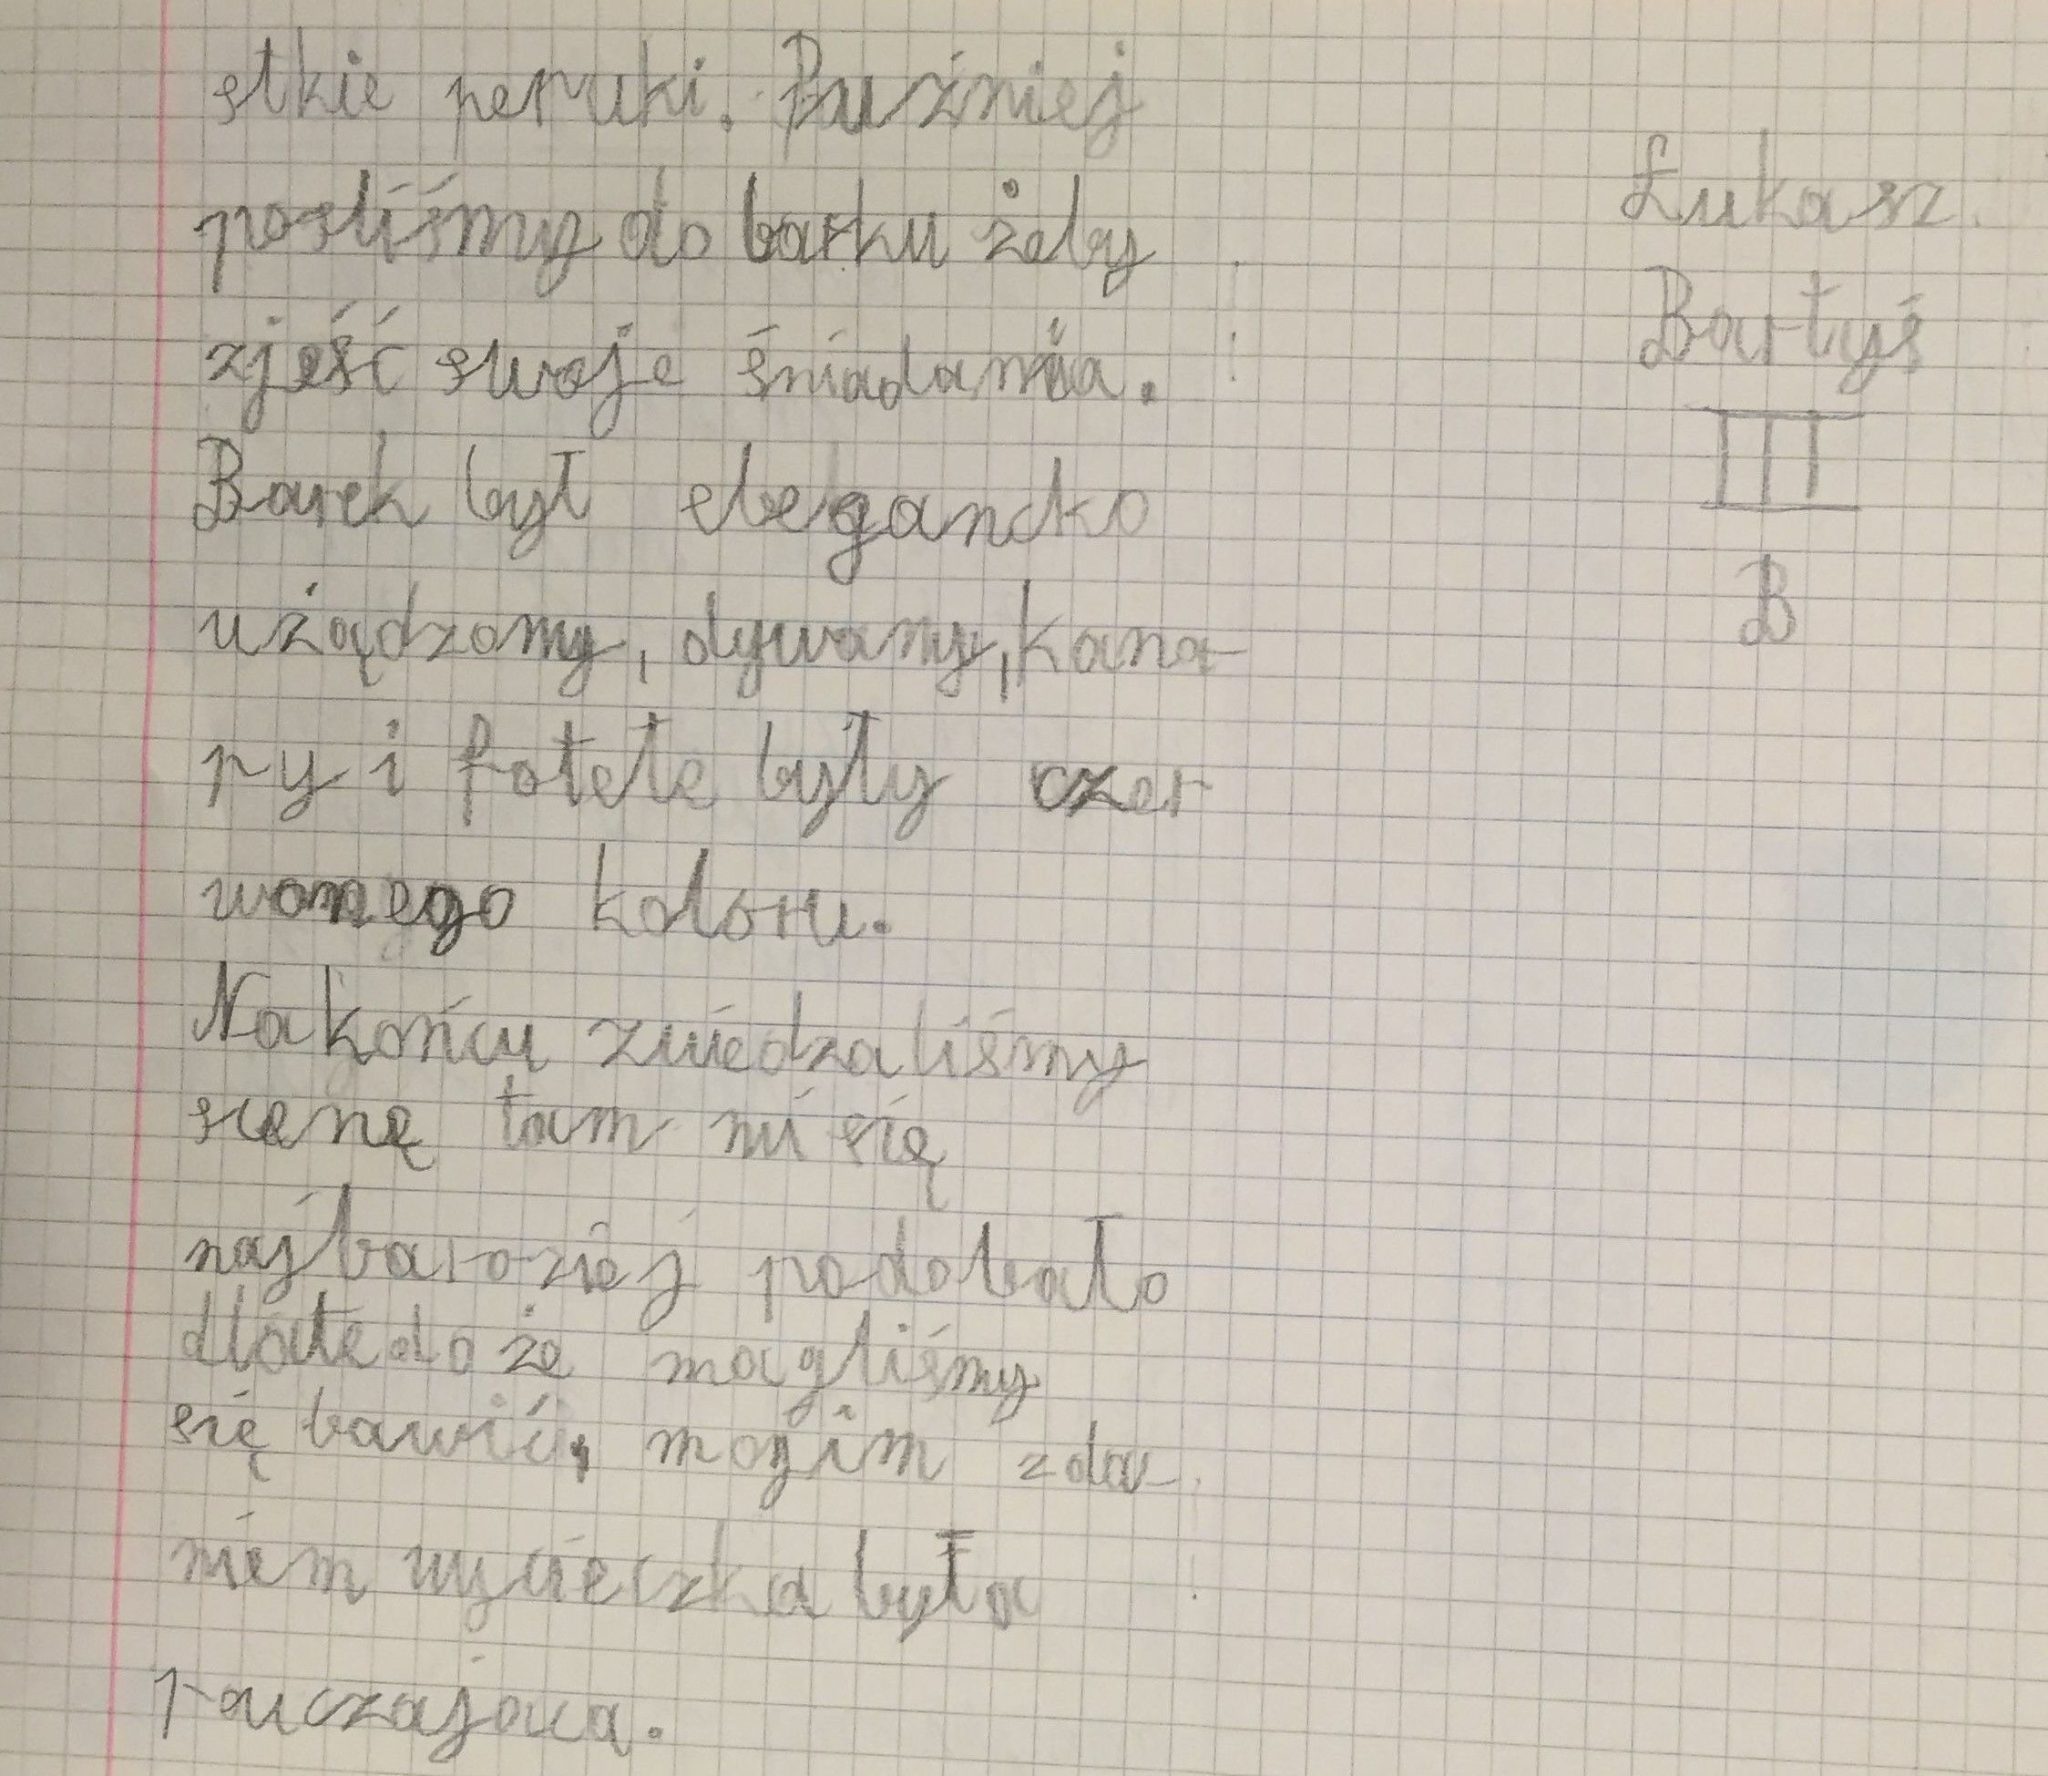 stkie peruki. Puźniej
posliśmy do barku żeby
zjeść swoje śniadania.
Barek był elegancko
użądzony, dywany, kana-
py i fotele były czer
wonego koloru.
Na końcu zwiedzaliśmy
scenę tam mi się
najbardziej podobało
dlatedo że mogliśmy
się bawić, mojim zda-
niem wycieczka była
pouczajoca.
Łukasz
Bartyś
III
B